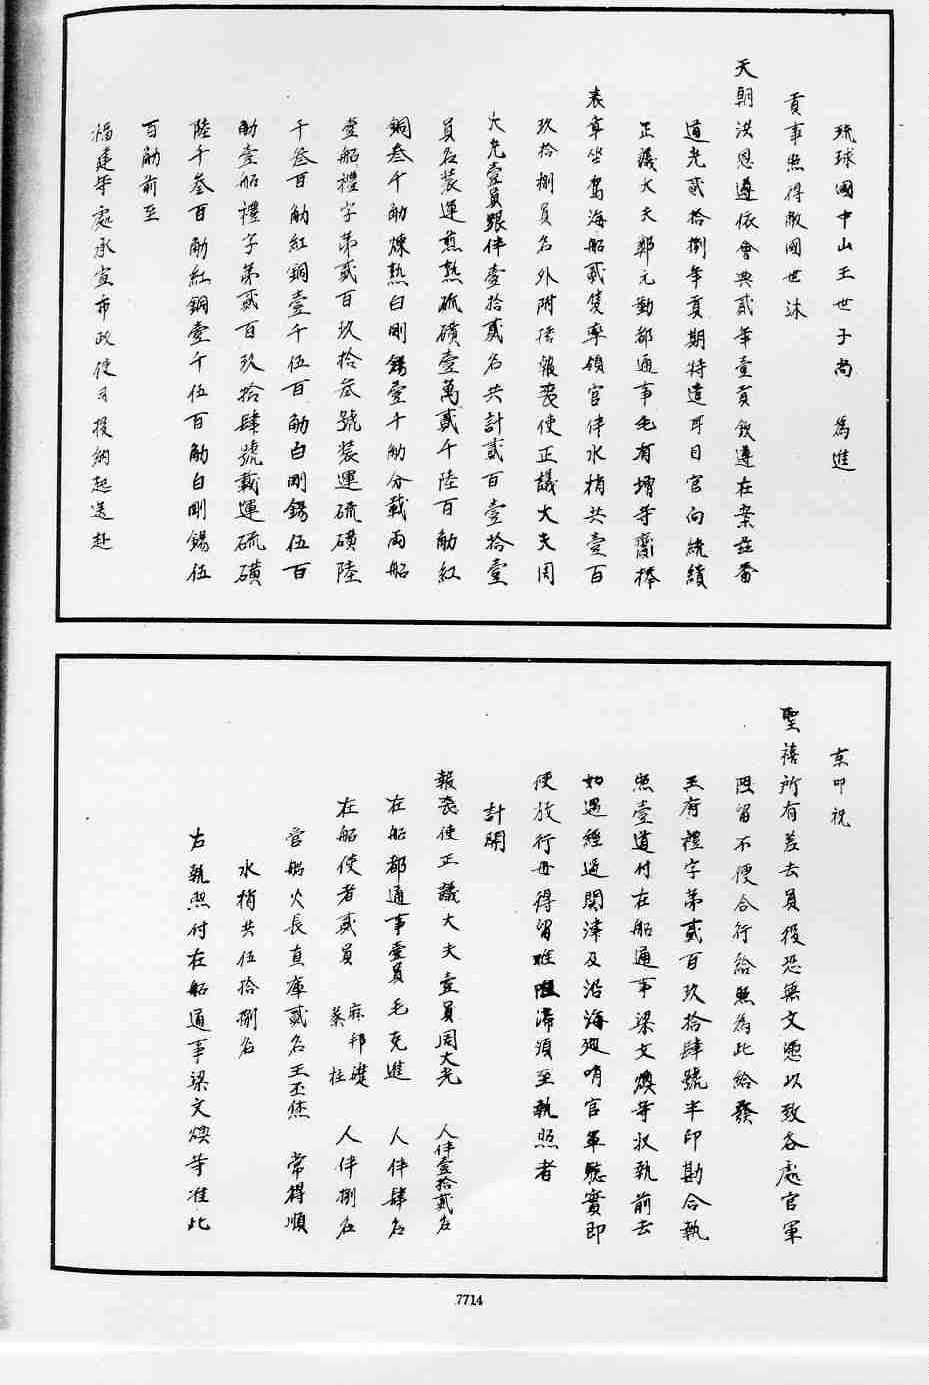 琉球國中山王世子尚　為進
貢事照得敝國世沐
天朝洪恩遵依會典貳年壹貢欽遵在案玆當
道光貳拾捌年貢期特遣耳目官向統績
正議大夫鄭元勳都通事毛有增等齎捧
表章坐駕海船貳隻率領官伴水梢共壹百
玖拾捌員名外附搭報喪使正議大夫周
大先壹員跟伴壹拾貳名共計貳百壹拾壹
員名裝運煎熟硫磺壹萬貳千陸百觔紅
銅叁千觔煉熟白剛錫壹千觔分載兩船
壹船禮字第貳百玖拾叁號裝運硫磺陸
千叁百觔紅銅壹千伍百觔白剛錫伍百
觔壹船禮字第貳百玖拾肆號載運硫磺
陸千叁百觔紅銅壹千伍百觔白剛錫伍
百觔前至
福建等處承宣布政使司投納起送赴
京叩祝
聖禧所有差去員役恐無文憑以致各處官軍
阻留不便合行給照為此給發
王府禮字第貳百玖拾肆號半印勘合執
照壹道付在船通事梁文煥等收執前去
如遇經過關津及沿海巡哨官軍驗實即
便放行毋得留難阻滯須至執照者
計開
報喪使正議大夫壹員周大先　人伴壹拾貳名
在船都通事壹員毛克進　人伴肆名
在船使者貳員　麻邦礎　蔡柱　人伴捌名
管船火長直庫貳名王丕烋　常得順
水梢共伍拾捌名
右執照付在船通事梁文煥等准此
7714